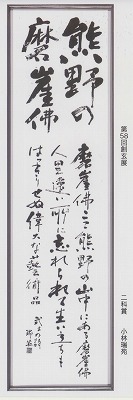 熊野の
磨崖佛
磨崖佛こゝ熊野の山中にある磨崖佛
人里遠い所に忘れられて生いたちも
はっきりせぬ偉大な藝術品
第58回創玄展
二科賞　小林瑞苑